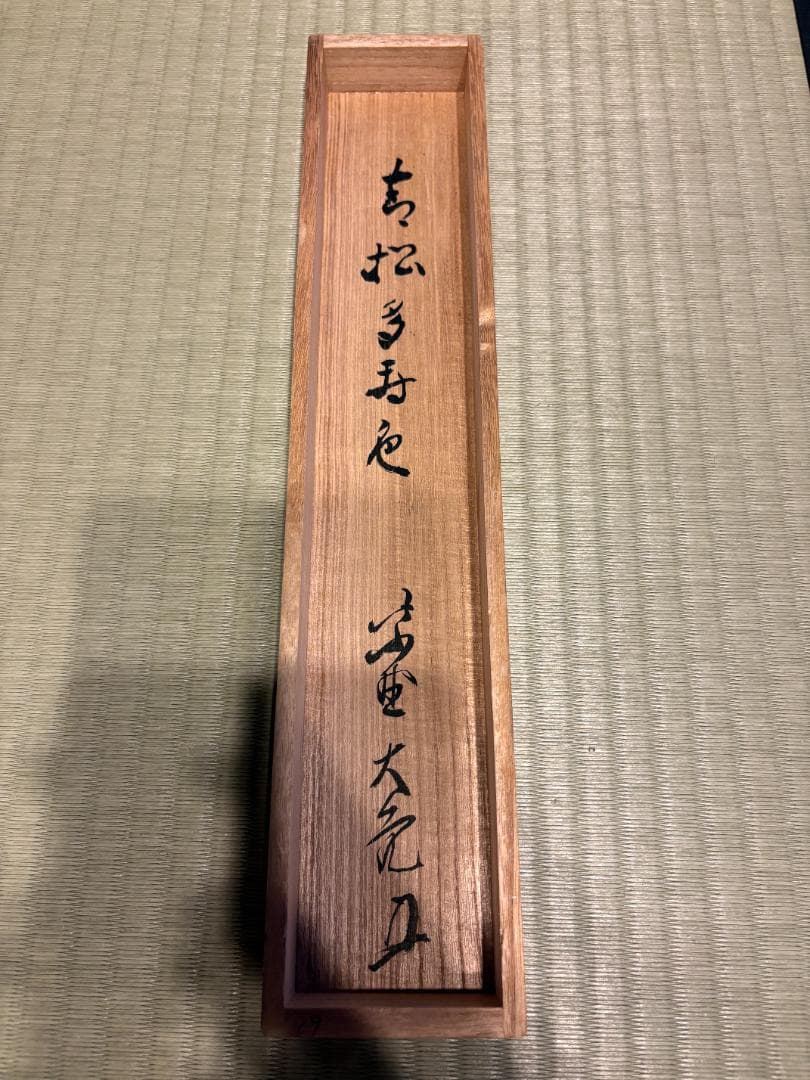 青松多寿色
紫野 大亮